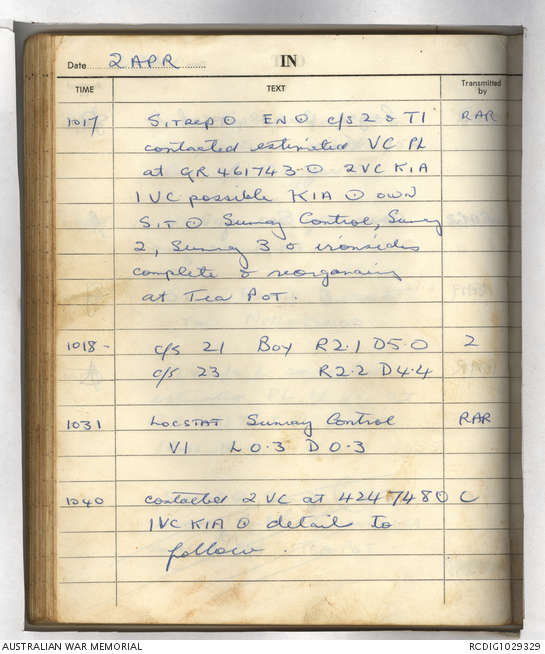 Date 2 APR IN
TIME TEXT Transmitted by
1017 Sitrep ⊙ EN ⊙ c/s 2 & T1 RAR
contacted estimated VC PL
at GR 461743 ⊙ 2 VC KIA
1 VC possible KIA ⊙ own
Sit ⊙ Sunray Control, Sunray
2, Sunray 3 & ironsides
complete & reorganaing
at Tea Pot.
1018 - c/s 21 Boy R2.1 D5.0 2
c/s 23 R2.2 D4.4
1031 LOCSTAT Sunray Control RAR
V1 L0.3 D0.3
1040 contacted 2 VC at 424748 ⊙ C
1 VC KIA ⊙ detail to
follow.
AUSTRALIAN WAR MEMORIAL RCDIG1029329